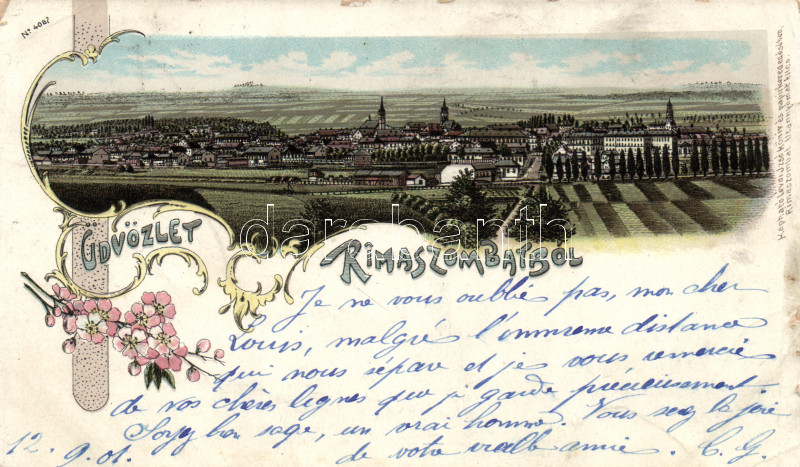 No 4087
ÜDVÖZLET
RIMASZOMBATBÓL
darabanth
Je ne vous oublie pas, mon cher
Louis, malgré l'immense distance
qui nous sépare et je vous remercie
de vos chères lignes que je garde précieusement
Soyez bon sage, un vrai homme. Vous serez la joie
12. 9. 01. de votre vieille amie. C. G.
Kapható Lévai Izsó könyv és papirkereskedésében,
Rimaszombat